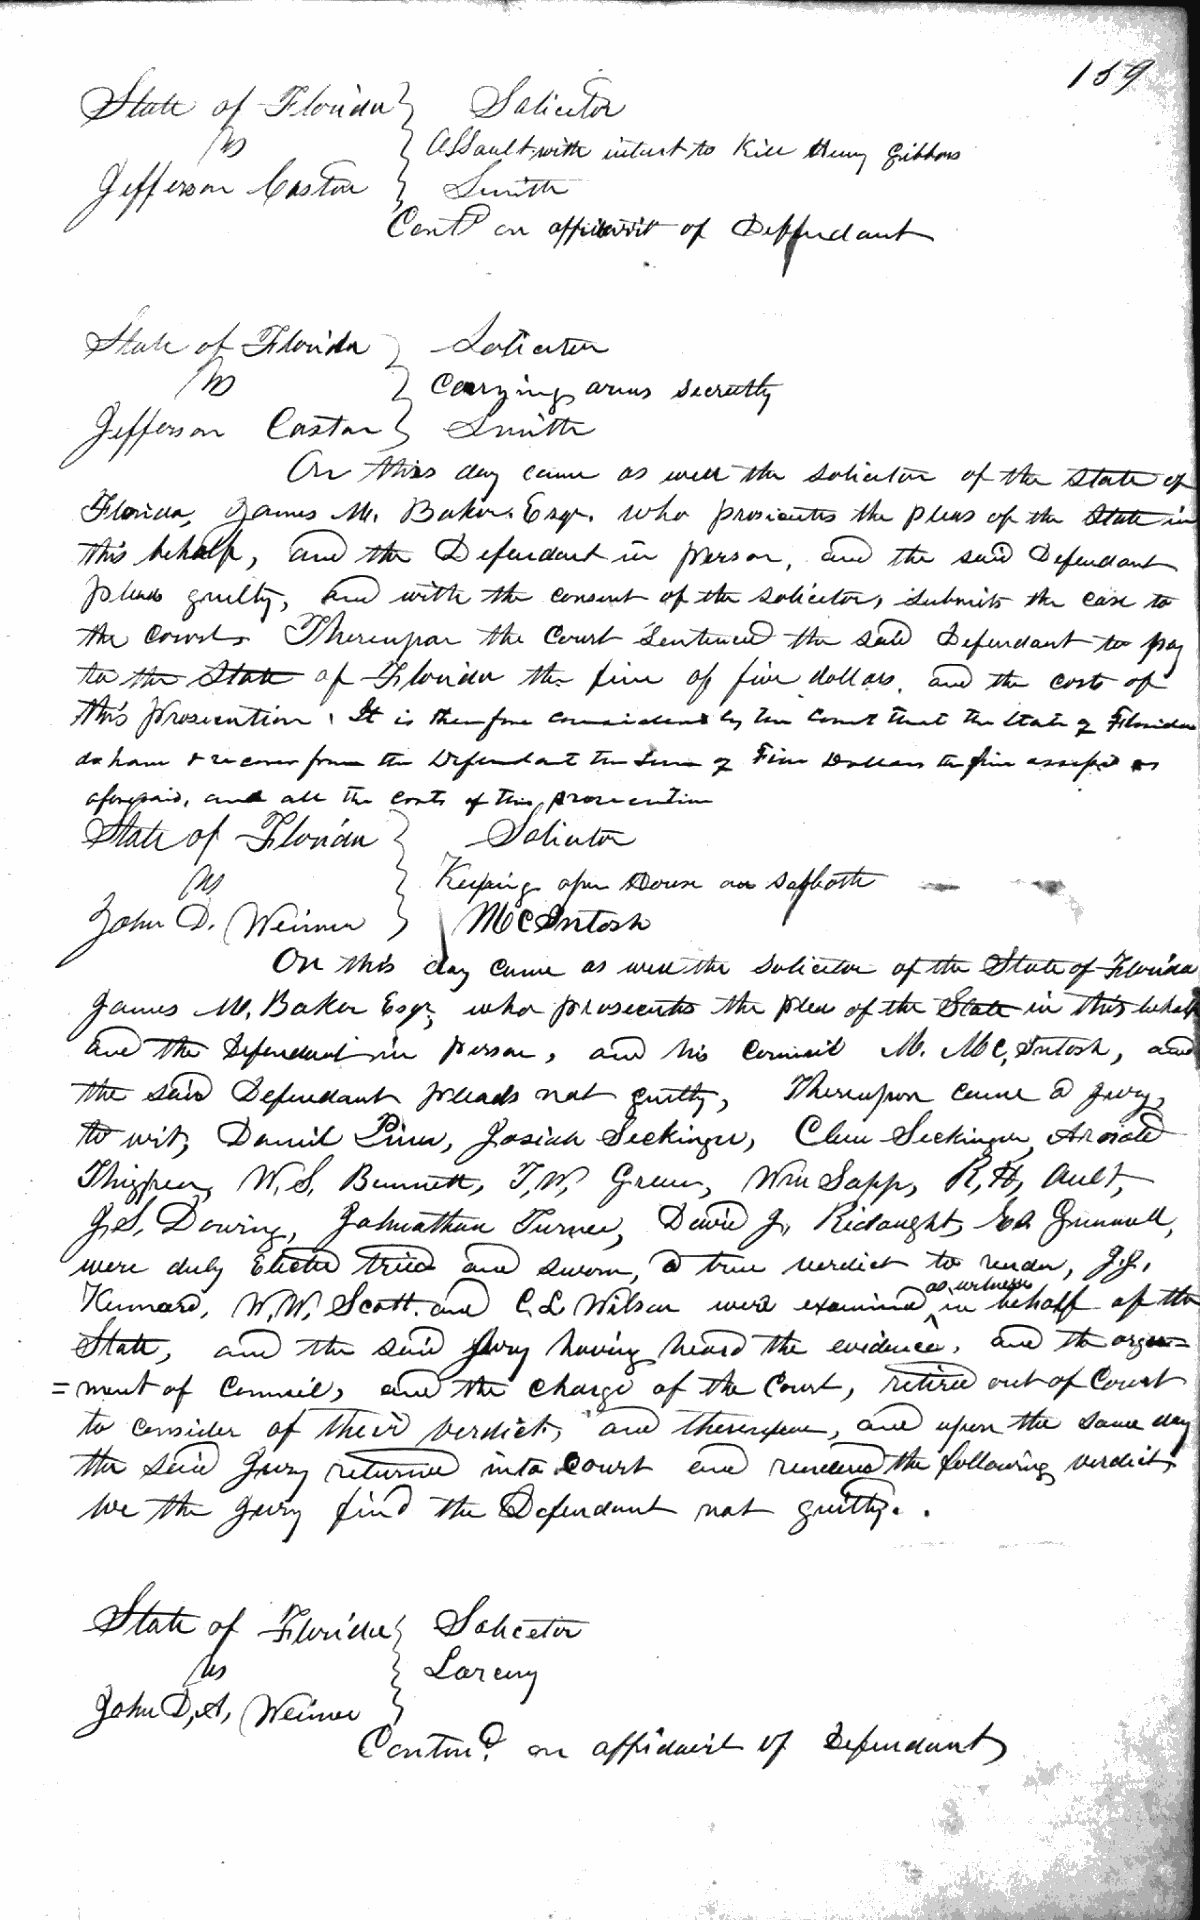 159
State of Florida } Solicitor
vs } Assault with intent to Kill Henry Gibbons
Jefferson Castor } Smith
Contd on affidavit of Deffendant
State of Florida } Solicitor
vs } Carrying arms secreetly
Jefferson Castor } Smith
On this day came as well the solicitor of the State of
Florida, James M. Baker. Esqr. who prosicutes the pleas of the State in
this behalf, and the Defendant in person, and the said Defendant
pleads guilty, and with the consent of the solicitor, submits the case to
the court. Thereupon the Court sentenced the said Defendant to pay
to the State of Florida the fine of five dollars, and the costs of
this prosecution. It is therefore considered by the Court that the State of Florida
do have & recover from the Defendant the sum of Five Dollars the fine assessed as
aforesaid, and all the costs of this prosecution
State of Florida } Solicitor
vs } Keeping open House on Sabboth
John D. Weimer } McIntosh
On this day came as well the solicitor of the State of Florida
James M. Baker Esqr, who prosecutes the plea of the State in this behalf
and the Defendant in person, and his council M. McIntosh, and
the said Defendant pleads not guilty, Thereupon came a jury,
to wit, Daniel Pinn, Josiah Seckinger, Clem Seckinger, Arnold
Thigpen, W. S. Bennett, T. W. Green, Wm Sapp, R. H, Ault,
J. S. Dowing, Johnathan Turner, David J, Ridaught, Ed Gunnell,
were duly Elected tried and sworn, a true verdict to render, J. J.
Kennard, W. W. Scott. and C. L Wilson were examined as witness in behalf of the
State, and the said Jury having heard the evidence, and the argu=
=ment of Council, and the charge of the Court, retired out of Court
to consider of their verdict, and thereupon, and upon the same day
the said Jury returned into Court and rendered the following verdict,
we the Jury find the Defendant not guilty. .
State of Florida } Solicetor
vs } Larceny
John D, A, Weimer }
Contind on affidavit of Defendant